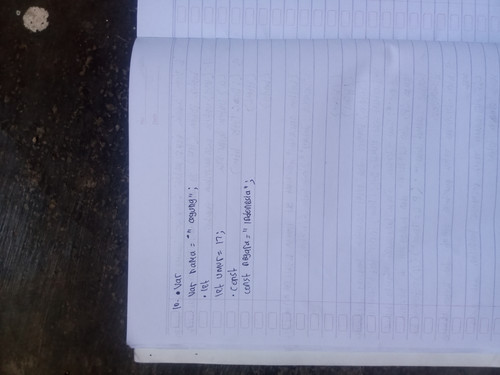 10. • Var
Var nama = "agung";
• let
let umur = 17;
• Const
const negara = "Indonesia";